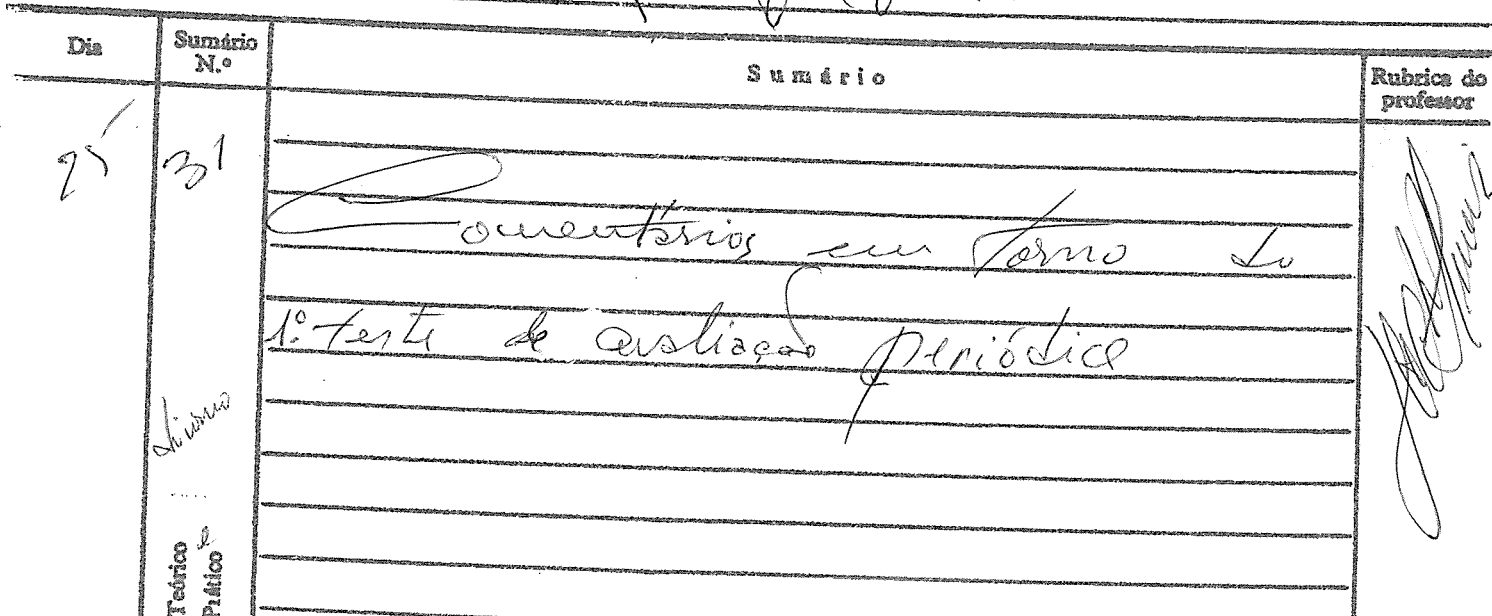 Dia
Sumário
N.º
Sumário
Rubrica do
professor
25
31
Comentários em torno do
1.º teste de avaliação periódica
diurno
Teórico e
Prático